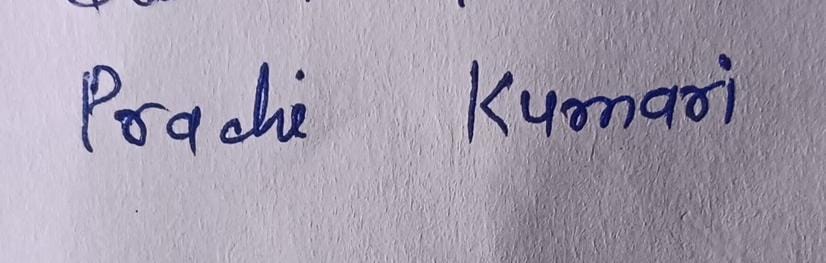 Prachi Kumari